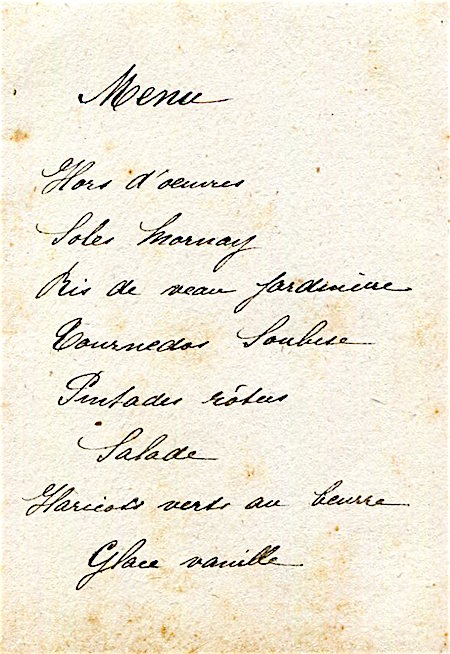 Menu
Hors d'oeuvres
Soles Mornay
Ris de veau Jardinière
Tournedos Soubise
Pintades rôties
Salade
Haricots verts au beurre
Glace vanille